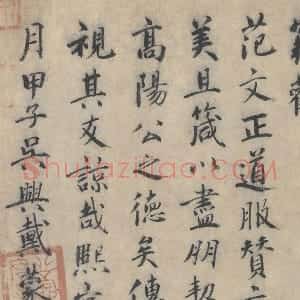 范文正道服贊
美且箴以盡朋契
高陽公之德矣傳
視其友諒哉熙寧
月甲子吳興戴蒙
shufazidian.com